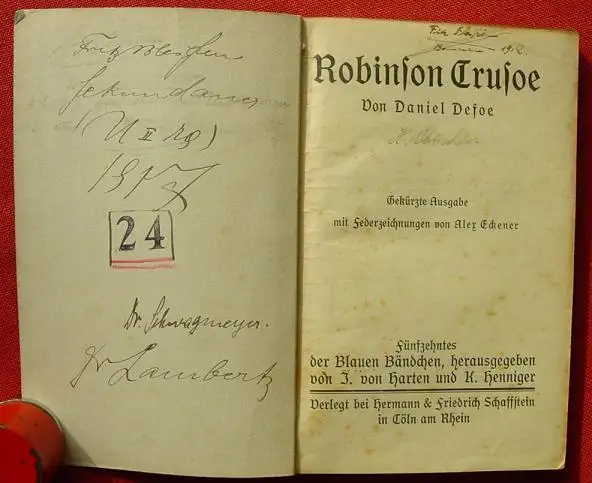 Fritz
Sekundaner
(U II Rg)
1917
24
Dr. Schwagmeyer.
Dr Lambertz
Robinson Crusoe
Von Daniel Defoe
Gekürzte Ausgabe
mit Federzeichnungen von Alex Eckener
Fünfzehntes
der Blauen Bändchen, herausgegeben
von J. von Harten und K. Henniger
Verlegt bei Hermann & Friedrich Schaffstein
in Cöln am Rhein